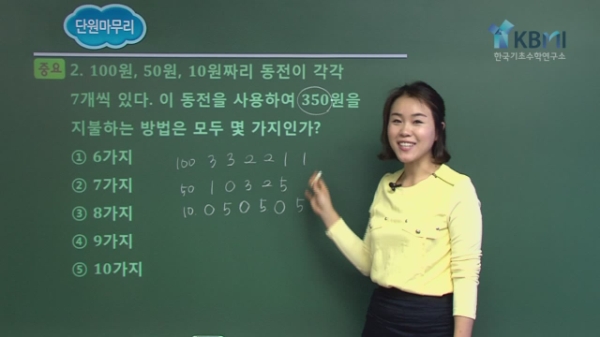 단원마무리
KBMI
한국기초수학연구소
중요 2. 100원, 50원, 10원짜리 동전이 각각
7개씩 있다. 이 동전을 사용하여 350원을
지불하는 방법은 모두 몇 가지인가?
① 6가지
② 7가지
③ 8가지
④ 9가지
⑤ 10가지
100 3 3 2 2 1 1
50 1 0 3 2 5
10 0 5 0 5 0 5